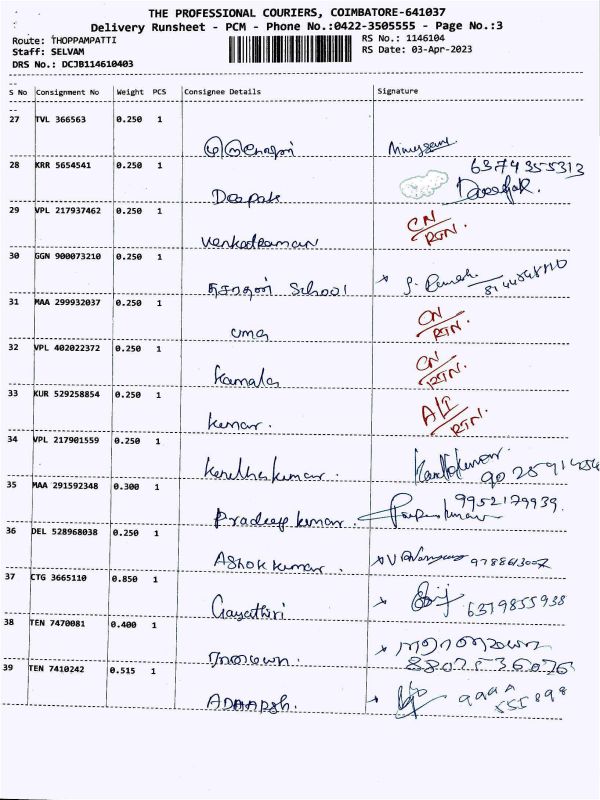 THE PROFESSIONAL COURIERS, COIMBATORE-641037
Delivery Runsheet - PCM - Phone No.:0422-3505555 - Page No.:3
Route: THOPPAMPATTI
RS No.: 1146104
Staff: SELVAM
RS Date: 03-Apr-2023
DRS No.: DCJB114610403
S No Consignment No Weight PCS Consignee Details Signature
27 TVL 366563 0.250 1
28 KRR 5654541 0.250 1 6374355313
Deepak Deepak.
29 VPL 217937462 0.250 1 CN
Venkatraman RTN.
30 GGN 900073210 0.250 1
School
31 MAA 299932037 0.250 1 CN
uma RTN.
32 VPL 402022372 0.250 1 CN
Kamala RTN.
33 KUR 529258854 0.250 1 A/I
Kumar. RTN.
34 VPL 217901559 0.250 1
Karthikkumar.
35 MAA 291592348 0.300 1 9952179939.
Pradeep kumar.
36 DEL 528968038 0.250 1
ASHOK KUMAR. 9788613007
37 CTG 3665110 0.850 1
Gayathiri 6379855938
38 TEN 7470081 0.400 1
8807536076
39 TEN 7410242 0.515 1
ADAARSH.